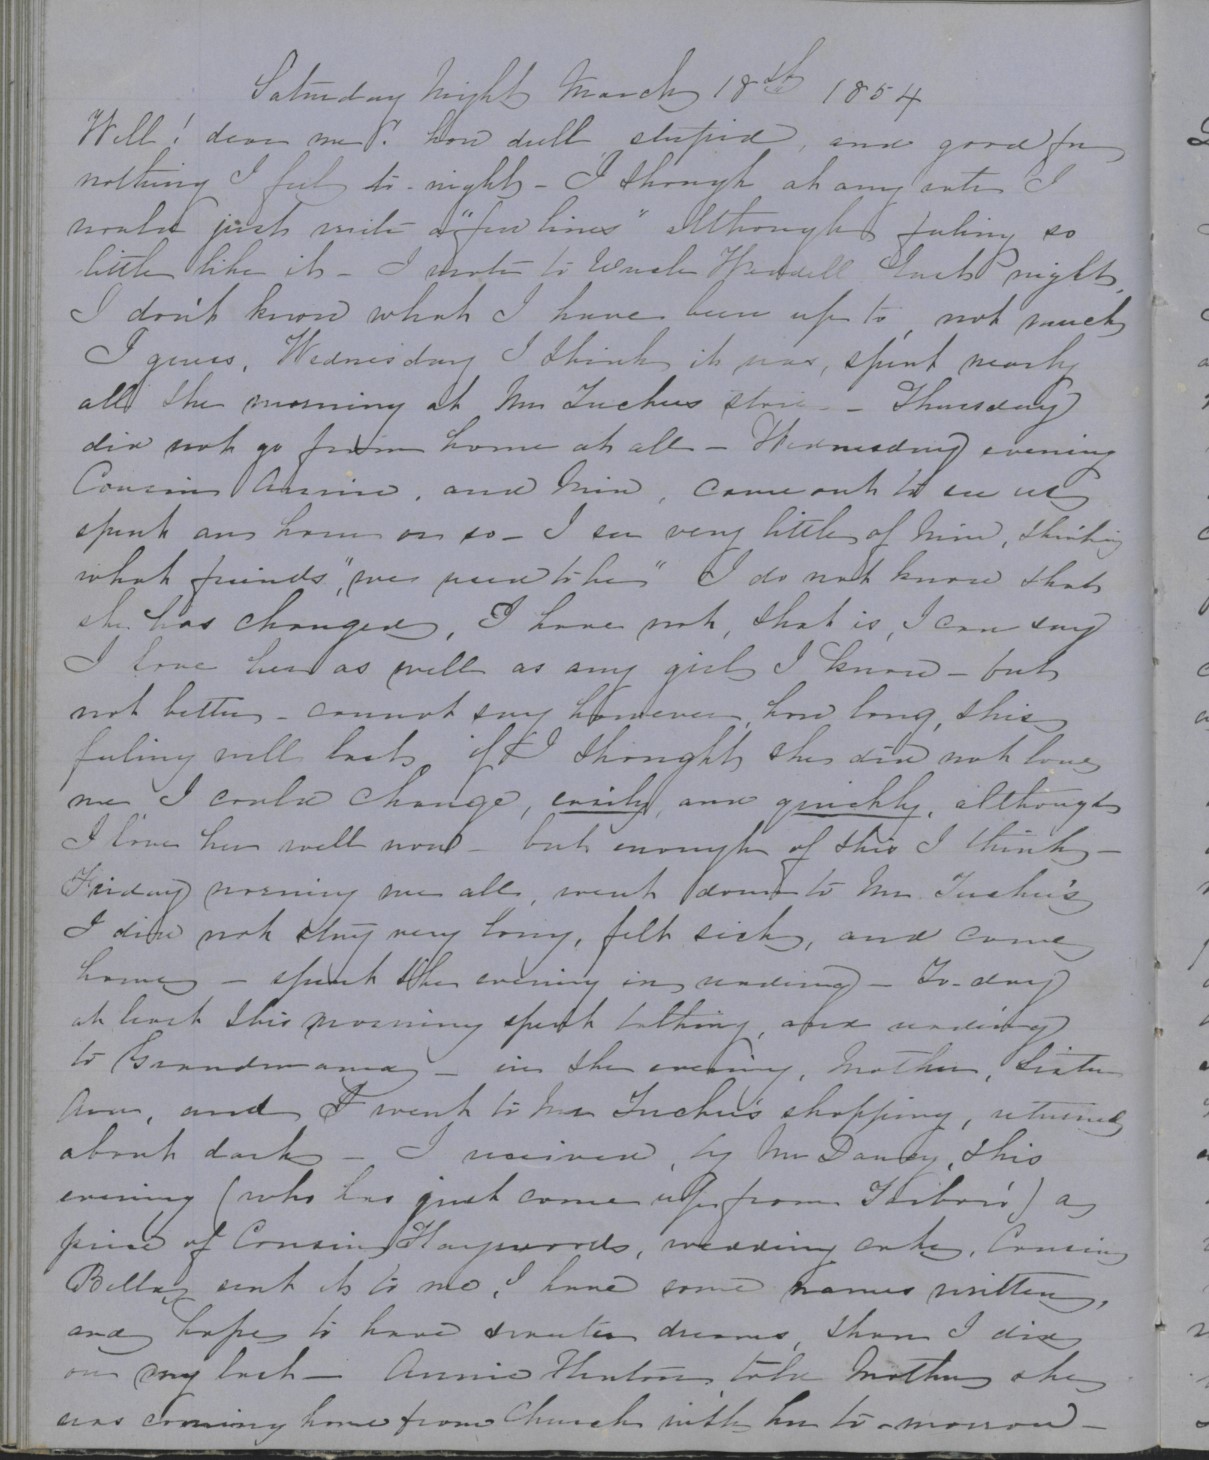 Saturday Night March 18th 1854
Well! dear me! how dull, stupid, and good for
nothing I feel to-night - I though at any rate I
would just write a "few lines" although feeling so
little like it - I wrote to Wendell last night,
I don't know what I have been up to, not much
I guess, Wednesday I think it was, spent nearly
all the morning at Mr Tucker's store - Thursday
did not go from home at all - Wednesday evening
Cousin Annie, and Min, came out to see us
spent an hour or so - I see very little of Min, thinking
what friends, "we used to be" I do not know that
she has changed, I have not, that is, I can say
I love her as well as any girl I know - but
not better - cannot say however, how long, this
feeling will last, if I thought she did not love
me I could change, easily, and quickly, although
I love her well now - but enough of this I think -
Friday morning we all, went down to Mr Tucker's
I did not stay very long, felt sick, and came
home - spent the evening in reading - To-day
at least this morning spent talking, and reading
to Grandmama - in the evening, Mother, Sister
Ann, and I went to Mr Tucker's shopping, returned
about dark - I received, by Mr Dancy, this
evening (who has just come up from Tarboro') a
piece of Cousin Haywoods, wedding cake, Cousin
Bella sent it to me, I have some names written,
and hope to have sweeter dreams, than I did
on my last - Annie Hinton told Mother she
was coming home from Church with her to-morrow -